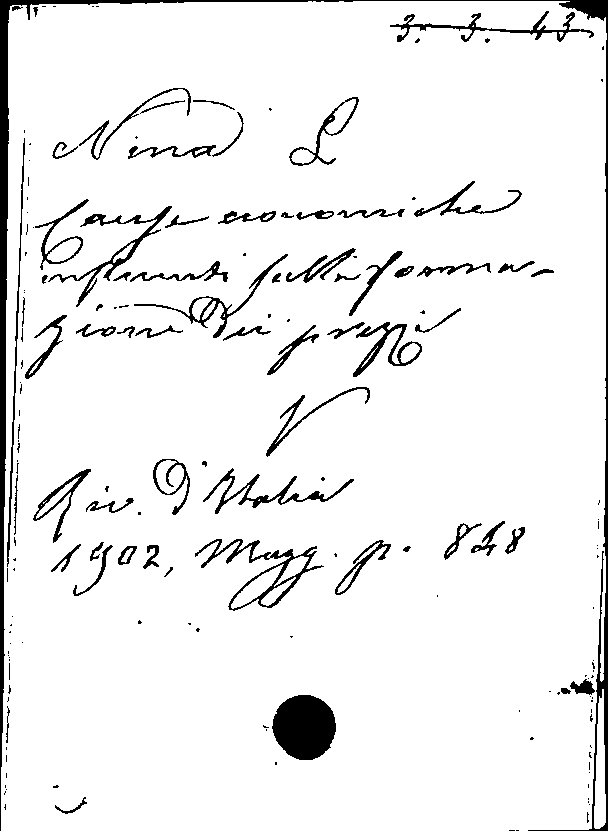 3. 3. 43
Nina L
Cause economiche
influenti sulla forma-
zione dei prezzi
V
Riv. d'Italia
1902, Magg. p. 848